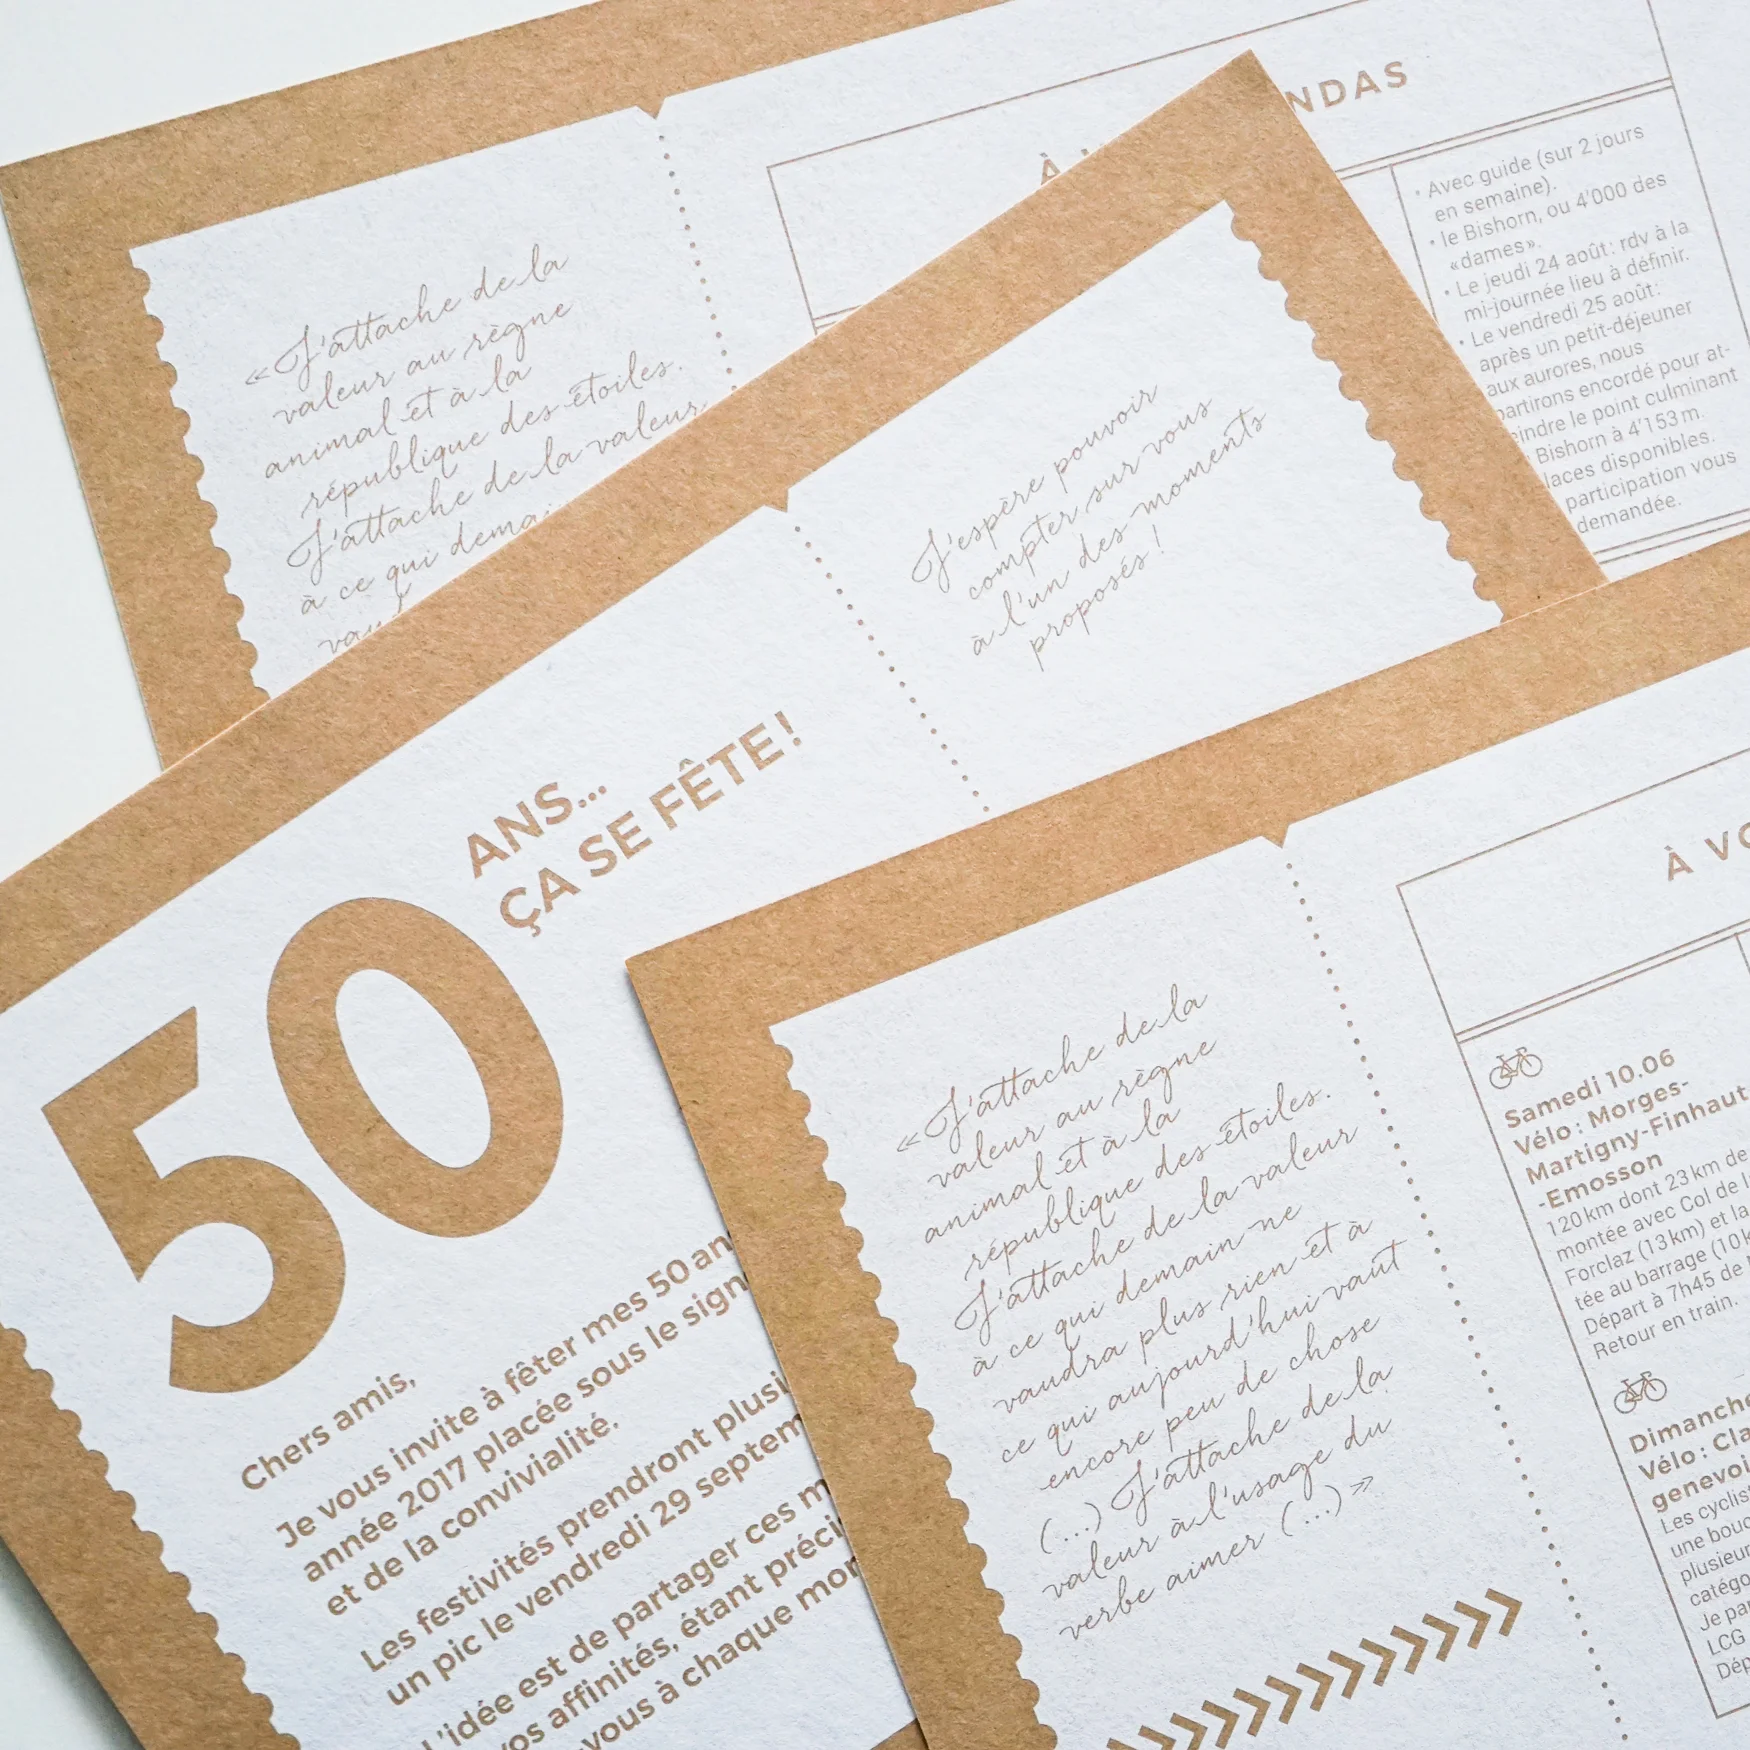 À
NDAS
• Avec guide (sur 2 jours
en semaine).
• le Bishorn, ou 4'000 des
«dames».
• Le jeudi 24 août: rdv à la
mi-journée lieu à définir.
• Le vendredi 25 août:
après un petit-déjeuner
aux aurores, nous
partirons encordé pour at-
eindre le point culminant
Bishorn à 4'153 m.
laces disponibles.
participation vous
demandée.
«J'attache de la
valeur au règne
animal et à la
république des étoiles.
J'attache de la valeur
à ce qui demai
vau
J'espère pouvoir
compter sur vous
à l'un des moments
proposés!
50
ANS...
ÇA SE FÊTE!
Chers amis,
Je vous invite à fêter mes 50 an
année 2017 placée sous le sign
et de la convivialité.
Les festivités prendront plusi
un pic le vendredi 29 septem
L'idée est de partager ces m
vos affinités, étant préci
-vous à chaque mor
«J'attache de la
valeur au règne
animal et à la
république des étoiles.
J'attache de la valeur
à ce qui demain ne
vaudra plus rien et à
ce qui aujourd'hui vaut
encore peu de chose
(...) J'attache de la
valeur à l'usage du
verbe aimer (...)»
À VO
Samedi 10.06
Vélo: Morges-
Martigny-Finhaut
-Emosson
120 km dont 23 km de
montée avec Col de l
Forclaz (13 km) et la
tée au barrage (10 k
Départ à 7h45 de
Retour en train.
Dimanche
Vélo: Cla
genevoi
Les cyclis
une bouc
plusieur
catégo
Je pa
LCG
Dép